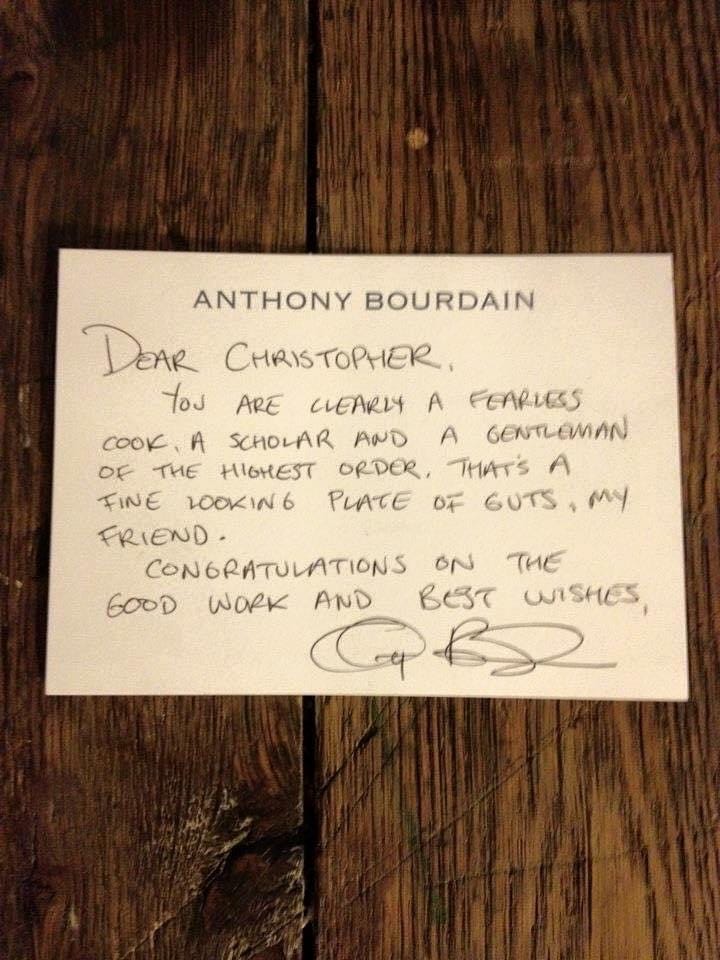 ANTHONY BOURDAIN
DEAR CHRISTOPHER,
YOU ARE CLEARLY A FEARLESS
COOK, A SCHOLAR AND A GENTLEMAN
OF THE HIGHEST ORDER. THAT'S A
FINE LOOKING PLATE OF GUTS, MY
FRIEND.
CONGRATULATIONS ON THE
GOOD WORK AND BEST WISHES,